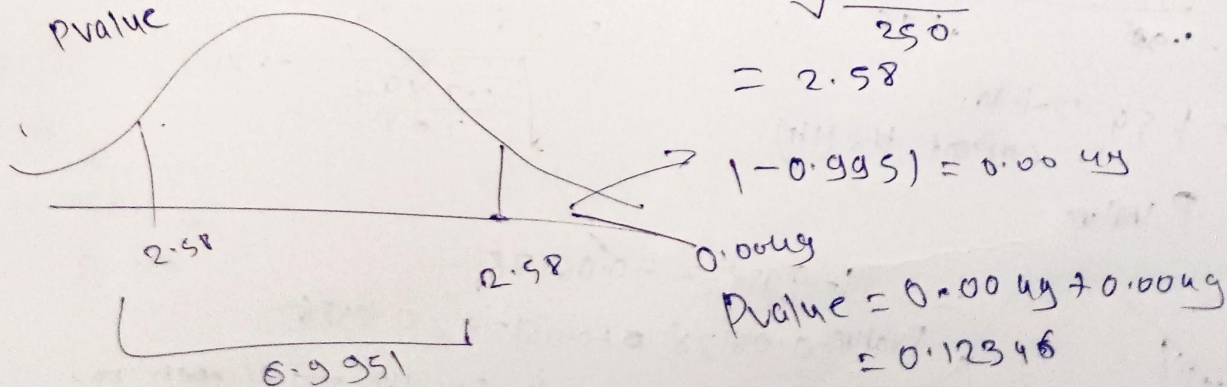 Pvalue
√
250
= 2.58
1-0.9951) = 0.0049
2.58
2.58
0.0049
Pvalue = 0.0049 + 0.0049
= 0.12346
0.9951